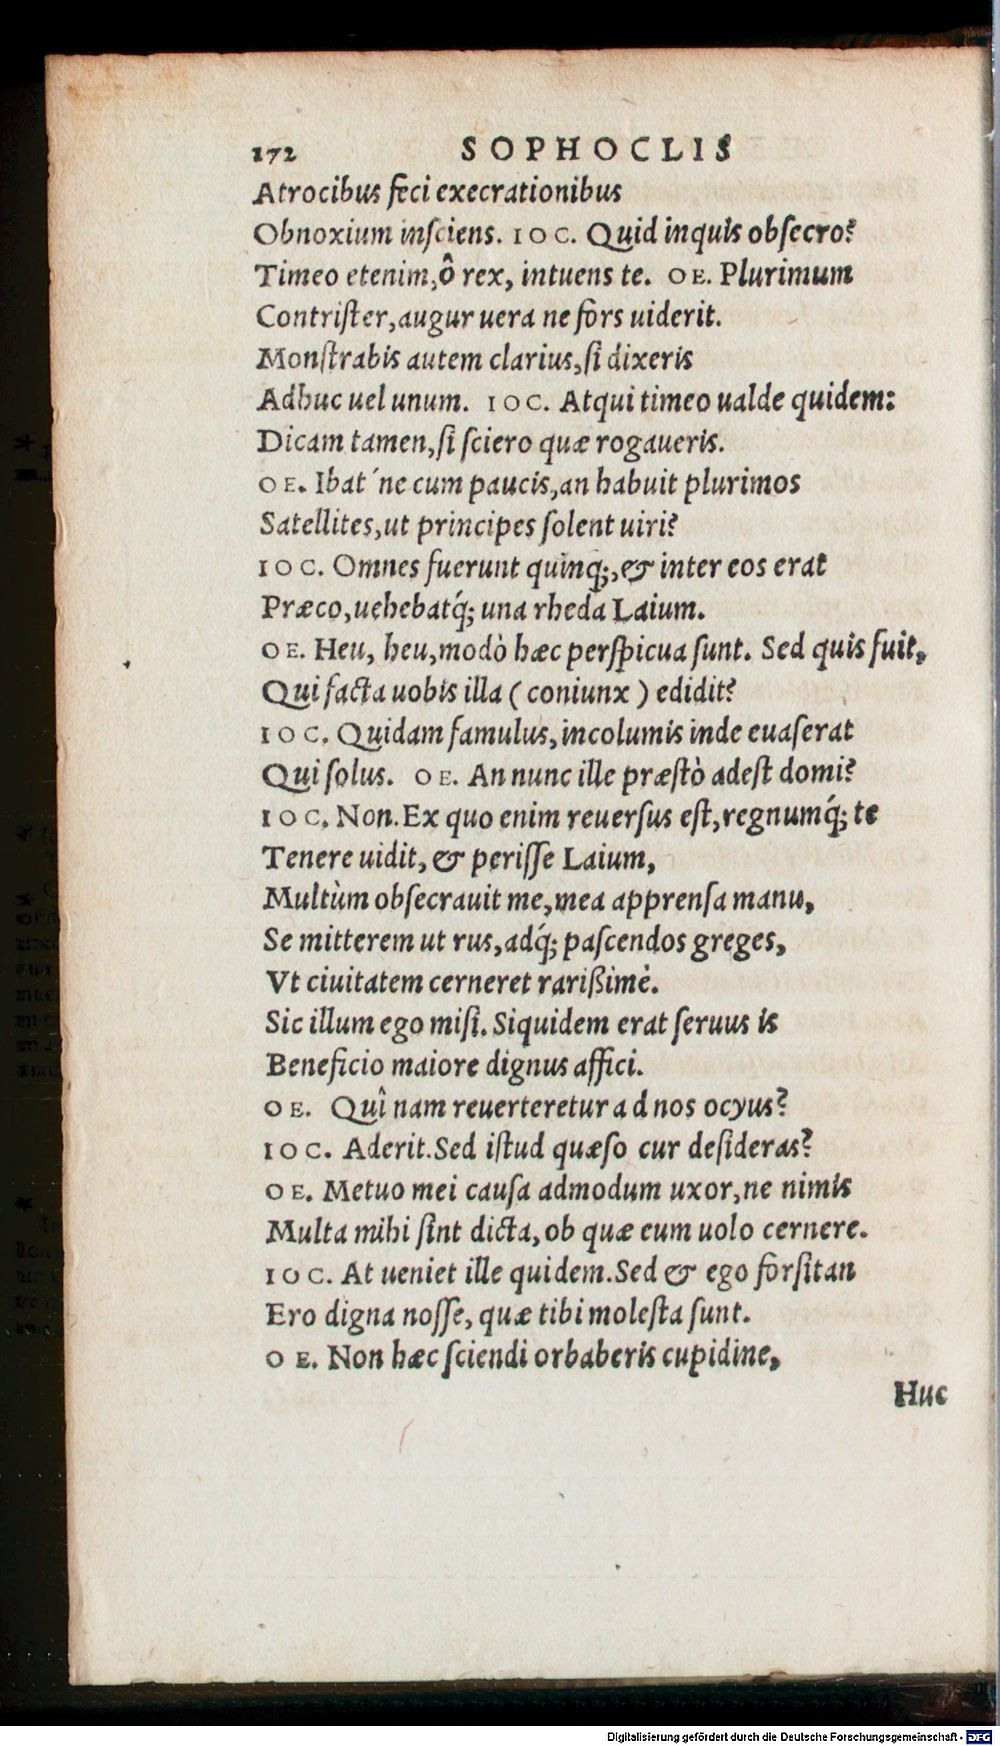 172 SOPHOCLIS
Atrocibus feci execrationibus
Obnoxium inſciens. IOC. Quid inquis obſecro?
Timeo etenim, ô rex, intuens te. OE. Plurimum
Contriſter, augur uera ne fors uiderit.
Monſtrabis autem clarius, ſi dixeris
Adhuc uel unum. IOC. Atqui timeo ualde quidem:
Dicam tamen, ſi ſciero quæ rogaueris.
OE. Ibat´ne cum paucis, an habuit plurimos
Satellites, ut principes ſolent uiri?
IOC. Omnes fuerunt quinq;, & inter eos erat
Præco, uehebatq́; una rheda Laium.
OE. Heu, heu, modò hæc perſpicua ſunt. Sed quis fuit,
Qui facta uobis illa (coniunx) edidit?
IOC. Quidam famulus, incolumis inde euaſerat
Qui ſolus. OE. An nunc ille præſtò adeſt domi?
IOC. Non. Ex quo enim reuerſus eſt, regnumq́; te
Tenere uidit, & periſſe Laium,
Multùm obſecrauit me, mea apprenſa manu,
Se mitterem ut rus, adq́; paſcendos greges,
Vt ciuitatem cerneret rarißimè.
Sic illum ego miſi. Siquidem erat ſeruus is
Beneficio maiore dignus affici.
OE. Quî nam reuerteretur ad nos ocyus?
IOC. Aderit. Sed iſtud quæſo cur deſideras?
OE. Metuo mei cauſa admodum uxor, ne nimis
Multa mihi ſint dicta, ob quæ eum uolo cernere.
IOC. At ueniet ille quidem. Sed & ego forſitan
Ero digna noſſe, quæ tibi moleſta ſunt.
OE. Non hæc ſciendi orbaberis cupidine,
Huc
Digitalisierung gefördert durch die Deutsche Forschungsgemeinschaft - DFG